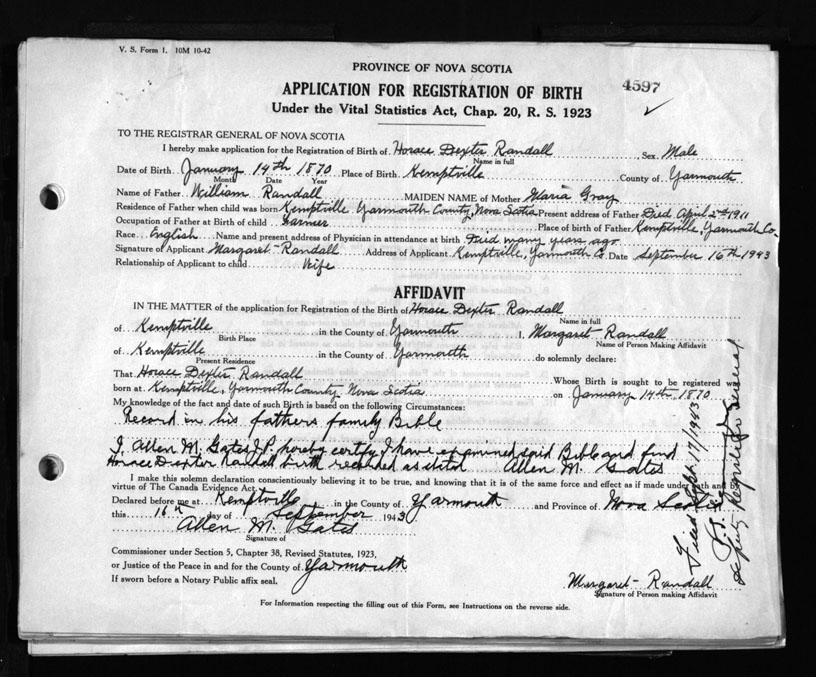 V. S. Form 1. 10M 10-42
PROVINCE OF NOVA SCOTIA
4597
APPLICATION FOR REGISTRATION OF BIRTH
Under the Vital Statistics Act, Chap. 20, R. S. 1923
TO THE REGISTRAR GENERAL OF NOVA SCOTIA
I hereby make application for the Registration of Birth of Horace Dexter Randall Sex Male
Name in full
Date of Birth January 14th 1870 Place of Birth Kemptville County of Yarmouth
Month Date Year
Name of Father William Randall MAIDEN NAME of Mother Maria Gray
Residence of Father when child was born Kemptville Yarmouth County, Nova Scotia Present address of Father Died April 2nd 1911
Occupation of Father at Birth of child Farmer Place of birth of Father Kemptville, Yarmouth Co.
Race English Name and present address of Physician in attendance at birth Died many years ago
Signature of Applicant Margaret Randall Address of Applicant Kemptville, Yarmouth Co. Date September 16th 1943
Relationship of Applicant to child Wife
AFFIDAVIT
IN THE MATTER of the application for Registration of the Birth of Horace Dexter Randall
Name in full
of Kemptville in the County of Yarmouth I, Margaret Randall
Birth Place Name of Person Making Affidavit
of Kemptville in the County of Yarmouth do solemnly declare:
Present Residence
That Horace Dexter Randall Whose Birth is sought to be registered was
born at Kemptville, Yarmouth County Nova Scotia on January 14th 1870
My knowledge of the fact and date of such Birth is based on the following Circumstances:
Record in his fathers family Bible
I, Allen M. Gates J.P. hereby certify I have examined said Bible and find
Horace Dexter Randall birth recorded as stated Allen M. Gates
I make this solemn declaration conscientiously believing it to be true, and knowing that it is of the same force and effect as if made under oath and by
virtue of The Canada Evidence Act.
Declared before me at Kemptville in the County of Yarmouth and Province of Nova Scotia
this 16th day of September 1943
Allen M. Gates
Signature of
Commissioner under Section 5, Chapter 38, Revised Statutes, 1923,
or Justice of the Peace in and for the County of Yarmouth
If sworn before a Notary Public affix seal.
Margaret Randall
Signature of Person making Affidavit
For Information respecting the filling out of this Form, see Instructions on the reverse side.
Filed Sept 17/1943
Deputy Registrar General